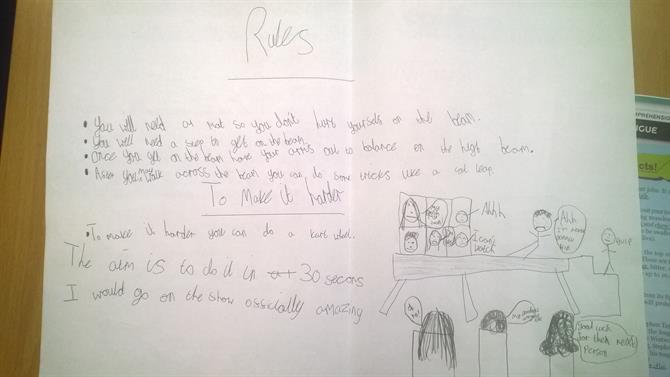 Rules
• You will need a mat so you dont hurt yourselfs on the beam.
• You will need a step to get on the beam.
• Once you get on the beam have your arms out to balance on the high beam.
• As you walk across the beam you can do some tricks like a cat leap.
To Make it harder
• To make it harder you can do a kart wheel.
The aim is to do it in 30 secons
I would go on the show officially amazing
Ahhh
I cant
watch
Ahh
Gulp
oh
no!
my
Good luck
for the next
person